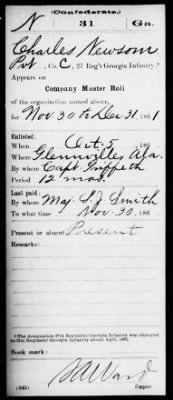 (Confederate.)
N 31 Ga.
Charles Newsom
Pvt, Co. C, 27 Reg't Georgia Infantry.*
Appears on
Company Muster Roll
of the organization named above,
for Nov 30 to Dec 31, 1861
Enlisted:
When Oct. 5, 186
Where Glennville Ala.
By whom Capt. Griffeth
Period 12 mos.
Last paid:
By whom Maj. S. J. Smith
To what time Nov. 30, 186
Present or absent Present
Remarks:
*The designation 27th Regiment Georgia Infantry was changed
to 31st Regiment Georgia Infantry about April, 1862.
Book mark:
(645) Copyist.